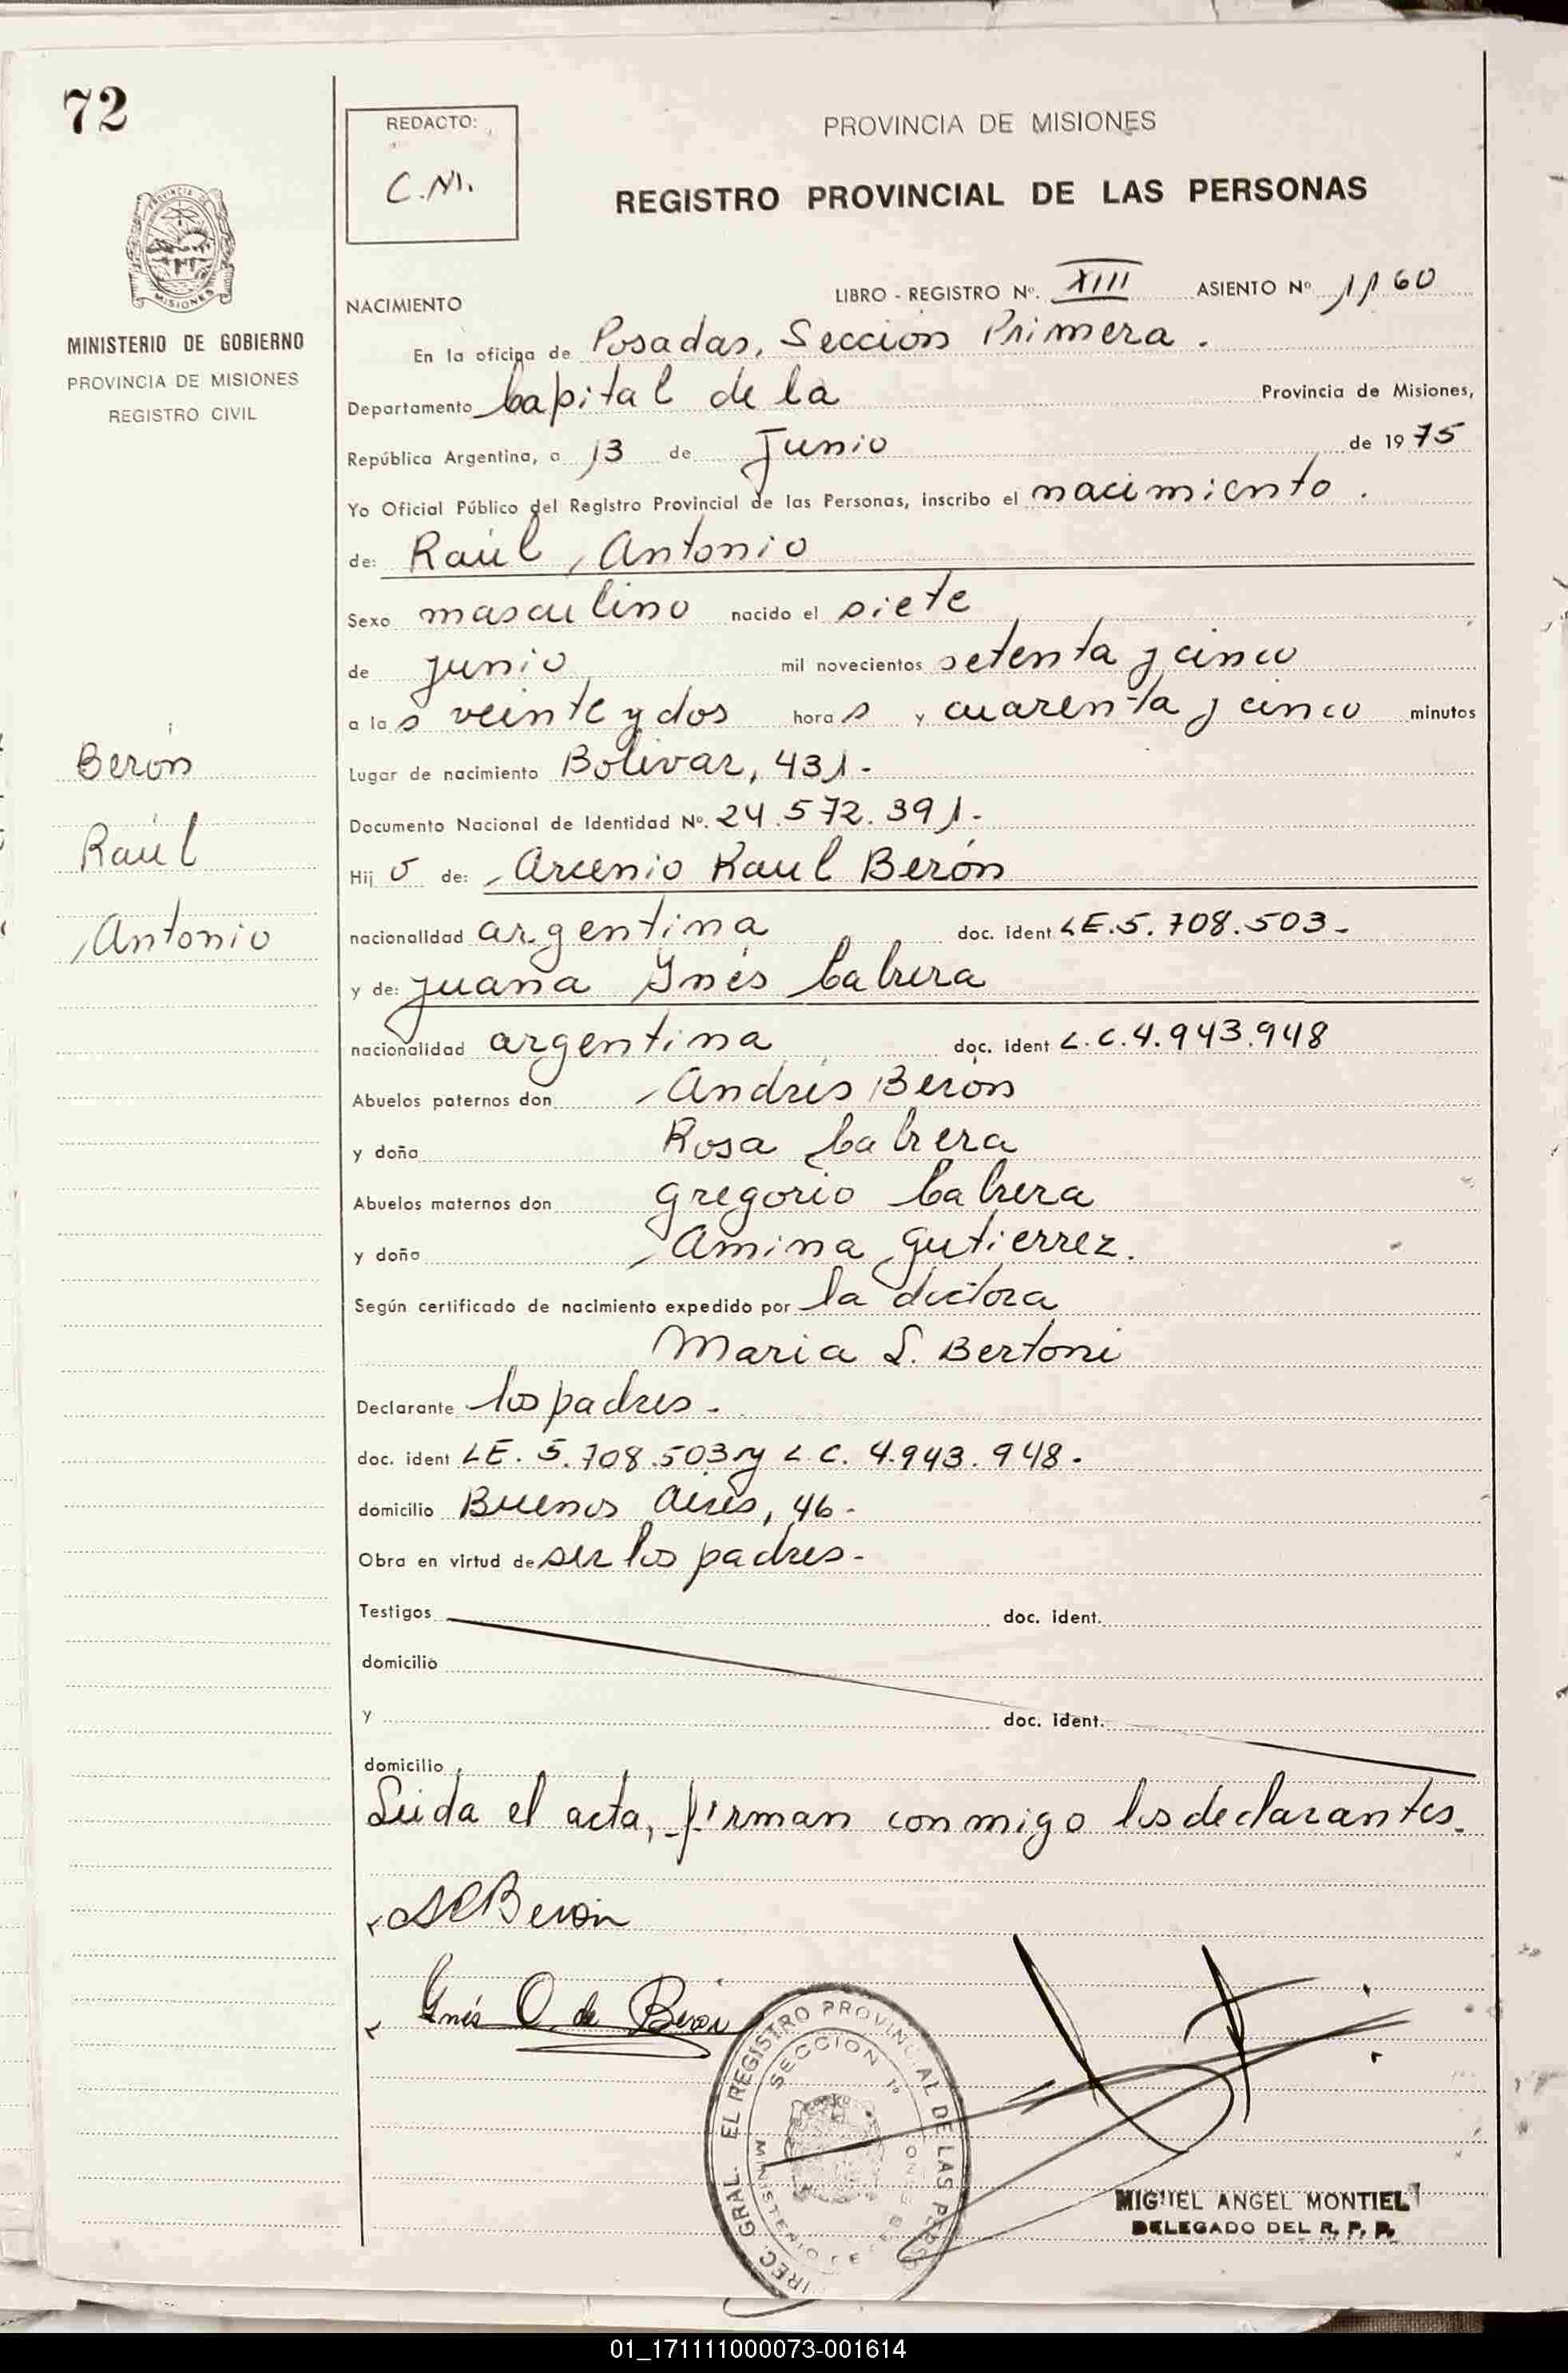 72
REDACTO:
C.M.
PROVINCIA DE MISIONES
REGISTRO PROVINCIAL DE LAS PERSONAS
PROVINCIA
MISIONES
MINISTERIO DE GOBIERNO
PROVINCIA DE MISIONES
REGISTRO CIVIL
LIBRO - REGISTRO Nº. XIII ASIENTO Nº 1160
NACIMIENTO
En la oficina de Posadas, Sección Primera.
Departamento Capital de la Provincia de Misiones,
República Argentina, a 13 de Junio de 1975
Yo Oficial Público del Registro Provincial de las Personas, inscribo el nacimiento.
de: Raúl Antonio
Sexo masculino nacido el siete
de junio mil novecientos setenta y cinco
a las veinte y dos horas y cuarenta y cinco minutos
Berón
Raúl
Antonio
Lugar de nacimiento Bolivar, 431.-
Documento Nacional de Identidad Nº. 24.572.391.-
Hijo de: Arcenio Raul Berón
nacionalidad argentina doc. ident LE.5.708.503.-
y de: Juana Ynés Cabrera
nacionalidad argentina doc. ident L.C.4.943.948
Abuelos paternos don Andrés Berón
y doña Rosa Cabrera
Abuelos maternos don Gregorio Cabrera
y doña Amina Gutierrez.
Según certificado de nacimiento expedido por la doctora
Maria S. Bertoni
Declarante los padres.-
doc. ident LE. 5.708.503 y L.C. 4.943.948.-
domicilio Buenos Aires, 46.-
Obra en virtud de ser los padres.-
Testigos doc. ident.
domicilio
y doc. ident.
domicilio
Leida el acta, firman conmigo los declarantes.
ARBerón
Ynés O. de Berón
DIREC. GRAL. EL REGISTRO PROVINCIAL DE LAS PERS
SECCION 1º
MINISTERIO DE
MIGUEL ANGEL MONTIEL
DELEGADO DEL R. P. P.
01_171111000073-001614